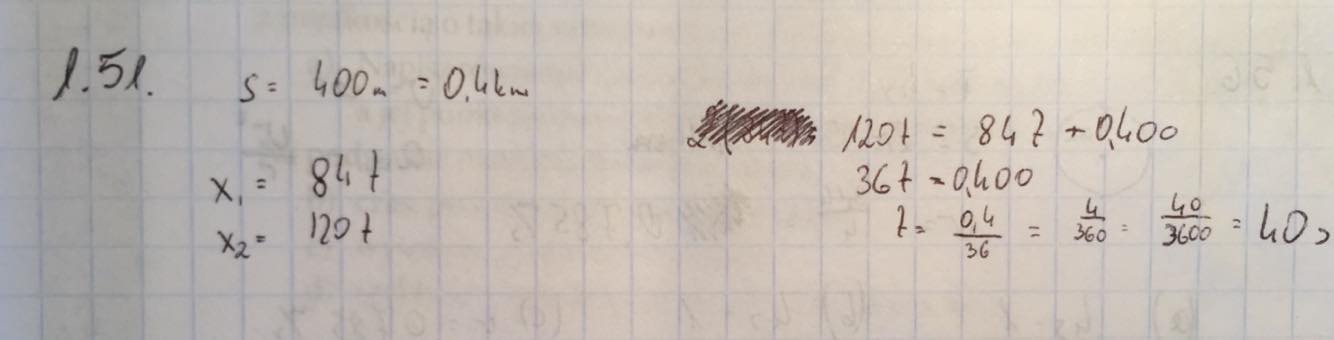 1.51. s = 400m = 0,4km
x₁ = 84t
x₂ = 120t
120t = 84t + 0,400
36t = 0,400
t = 0,4/36 = 4/360 = 40/3600 = 40s